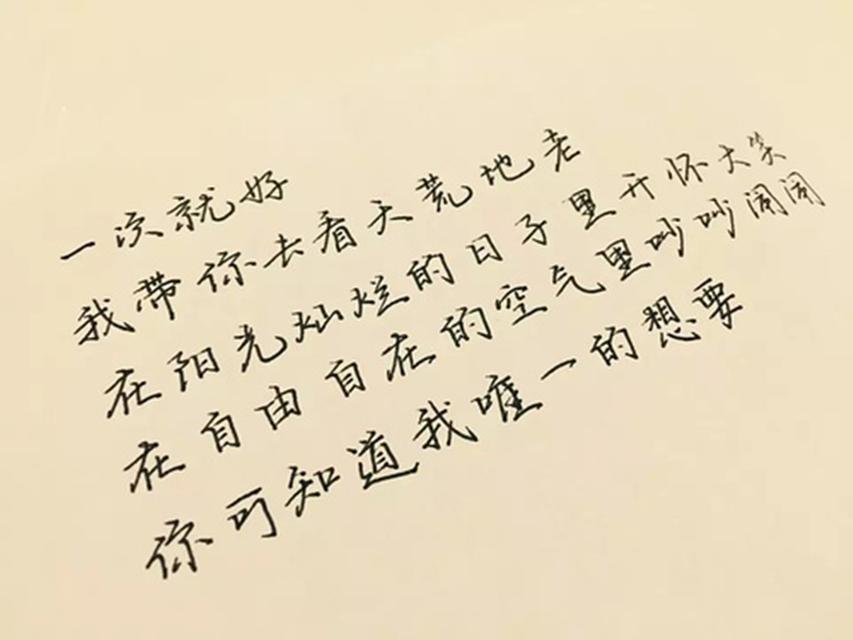 一次就好
我带你去看天荒地老
在阳光灿烂的日子里开怀大笑
在自由自在的空气里吵吵闹闹
你可知道我唯一的想要